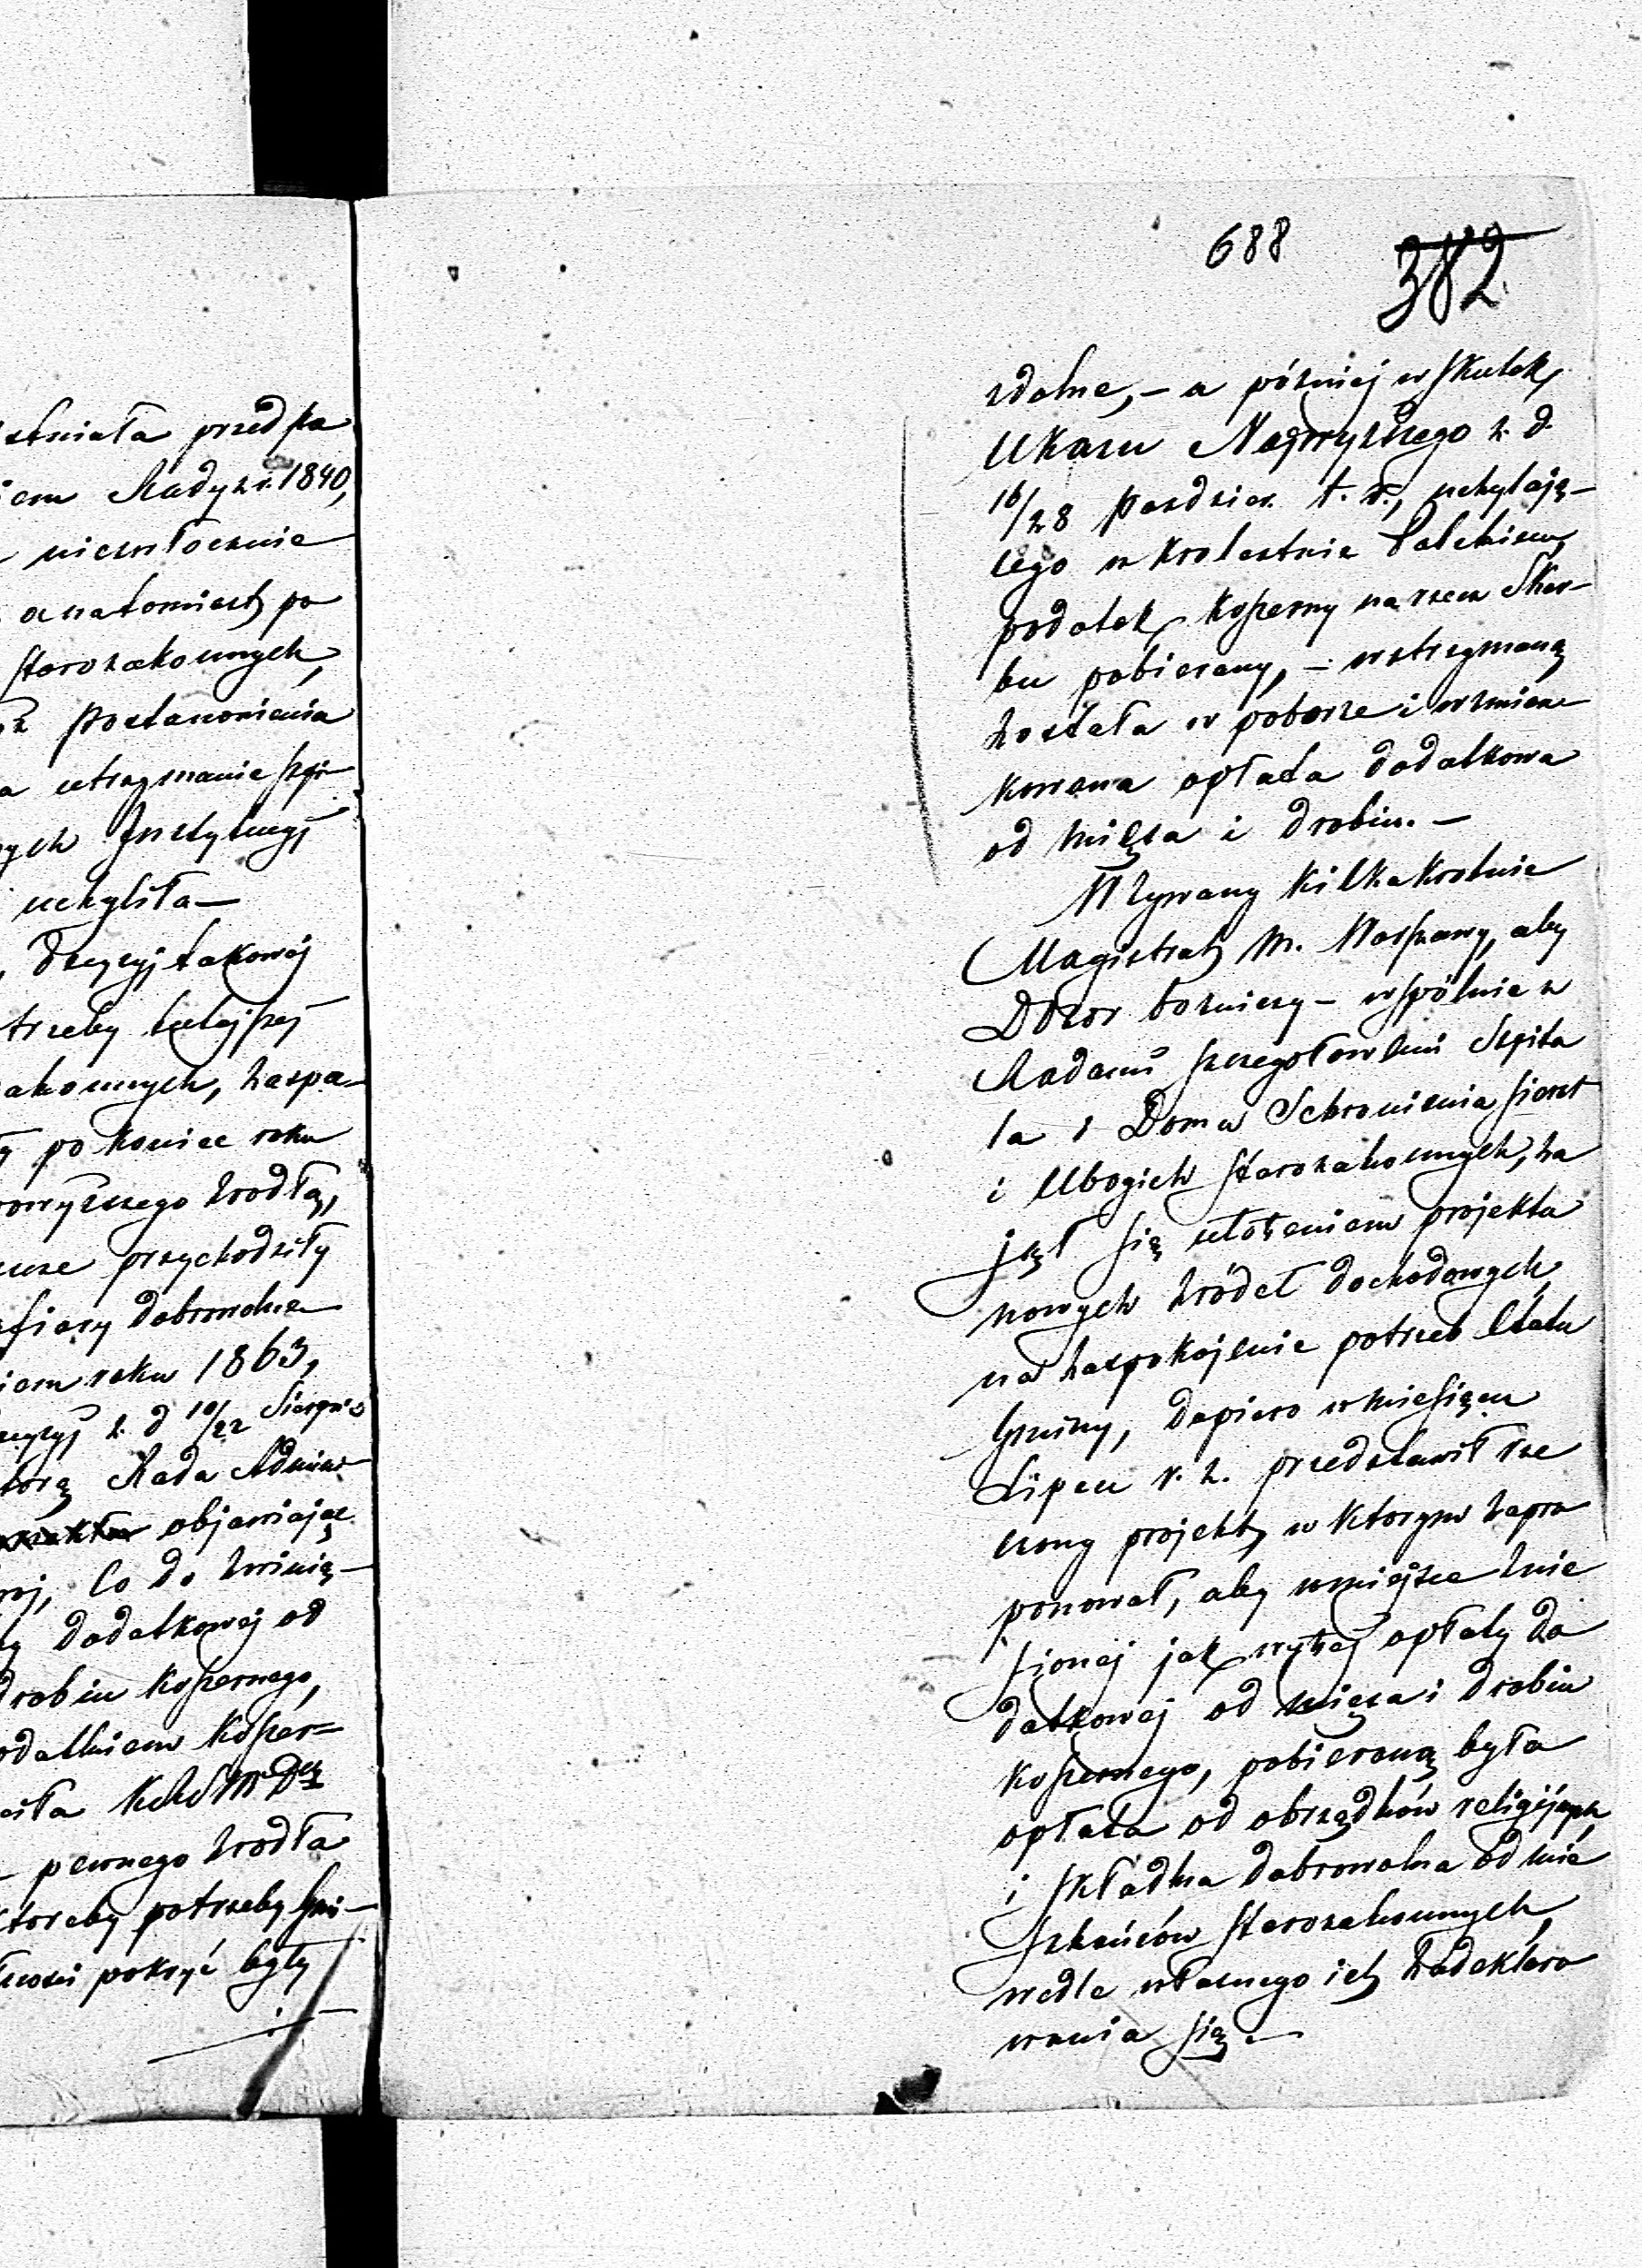 istniała przed po
iem Rady z r. 1840,
niezwłocznie
a natomiast po
starozakonnych,
postanowienia
a utrzymanie szpi-
ych Instytucyj
uchyliła —
, decyzyj takowej
trzeby tutejszej
akonnych, zaspa-
y po koniec roku
owyższego źrodła,
przychodziły
ofiary dobrowolne
iem roku 1863,
z. d 10/22 Sierpnia
torą Rada Admin-
objawiając
co do zwinię-
y dodatkowej od
drobiu koszernego,
odatkiem koszer=
iła
pewnego źrodła
ktoreby potrzeby Gmi-
pokryć były

688 382
zdolne, — a później w skutek
Ukazu Najwyższego z. d.
16/28 Paździer. t. r., uchylają-
cego w Krolestwie Polskiem
podatek koszerny na rzecz Skar-
bu pobierany, — wstrzymaną
została w poborze i wzmian-
kowana opłata dodatkowa
od mięsa i drobiu. —
Wzywany kilkakrotnie
Magistrat M. Warszawy, aby
Dozor bożniczy — wspólnie z
Radami szczegołowemi Szpita
la i Domu Schronienia sierot
i Ubogich starozakonnych, za
jął się ułożeniem projektu
nowych źródeł dochodowych
na zaspokojenie potrzeb Etatu
Gminy, dopiero w miesiącu
Lipcu r. z. przedstawił rze
czony projekt, w ktorym zapro
ponował, aby w miejsce znie
sionej jak wyżej opłaty do
datkowej od mięsa i drobiu
koszernego, pobieraną była
opłata od obrządków religijnych
i składka dobrowolna od mie
szkańców starozakonnych,
wedle własnego ich zadeklaro
wania się. —